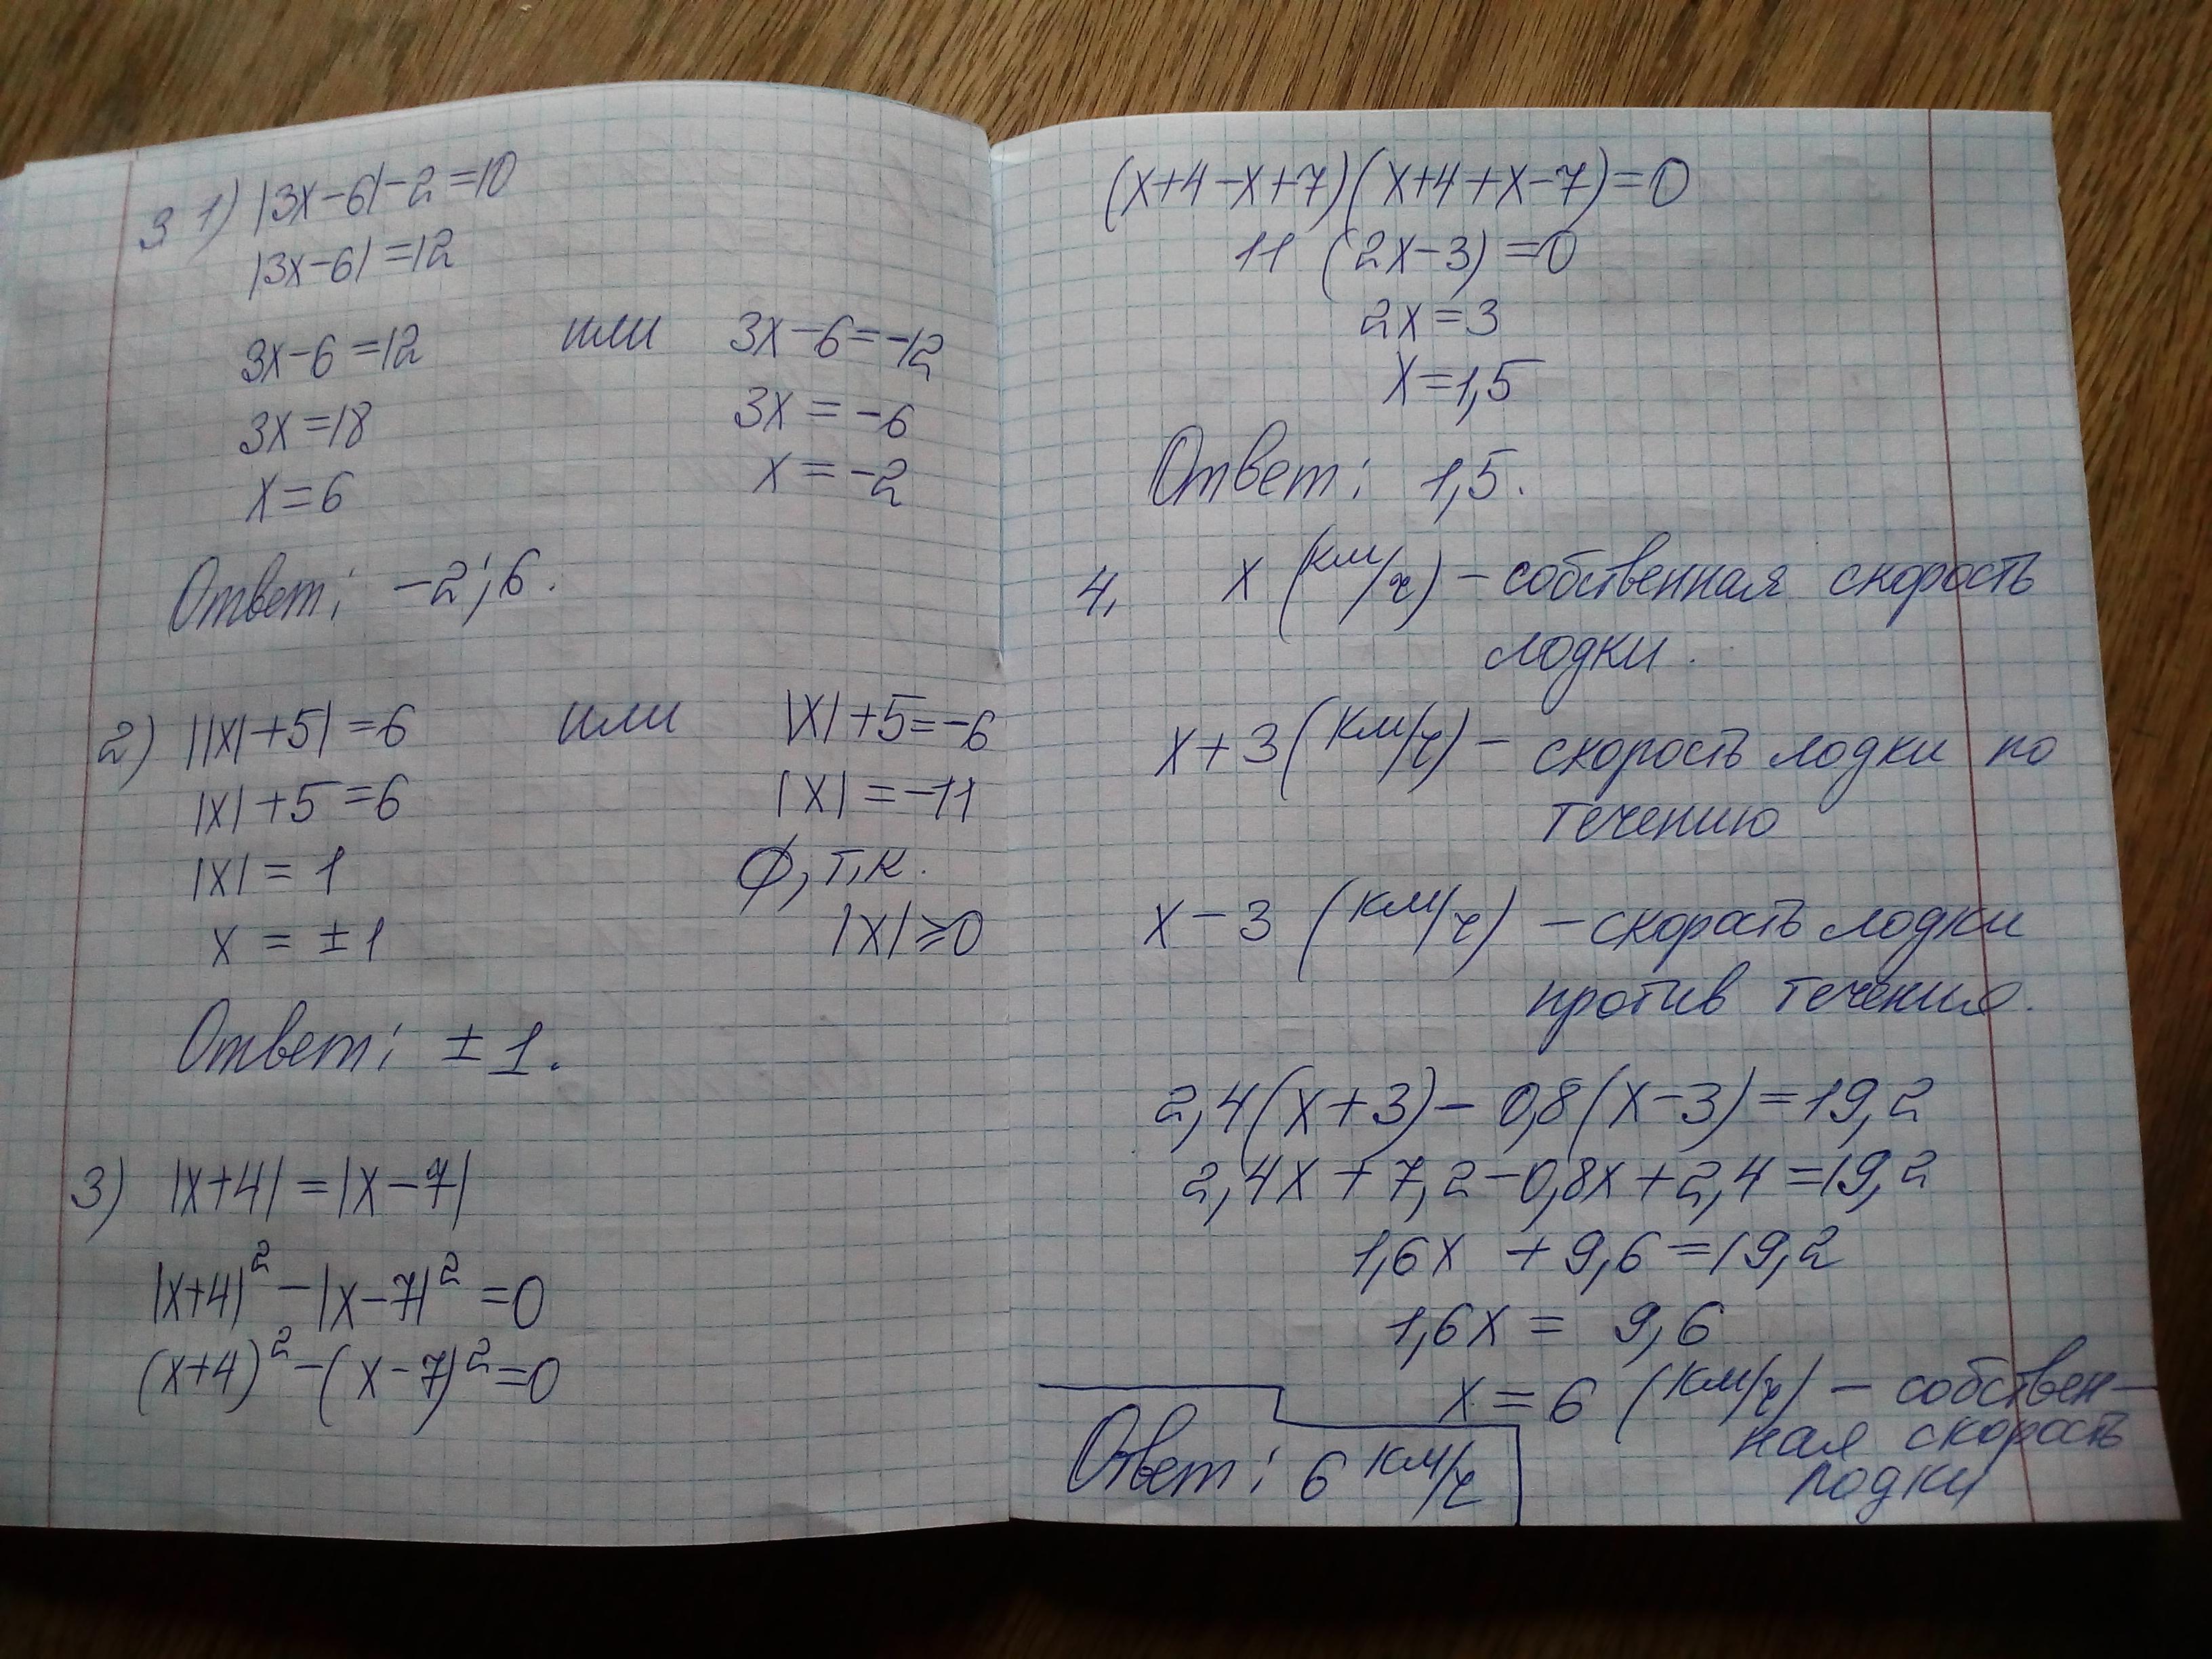 3 1) |3x-6|-2=10
|3x-6|=12
3x-6=12 или 3x-6=-12
3x=18 3x=-6
x=6 x=-2
Ответ: -2; 6.
2) ||x|+5|=6 или |x|+5=-6
|x|+5=6 |x|=-11
|x|=1 ∅, т.к.
x=±1 |x|⩾0
Ответ: ±1.
3) |x+4|=|x-7|
|x+4|²-|x-7|²=0
(x+4)²-(x-7)²=0
(x+4-x+7)(x+4+x-7)=0
11 (2x-3)=0
2x=3
x=1,5
Ответ: 1,5.
4. x (км/ч) - собственная скорость
лодки.
x+3 (км/ч) - скорость лодки по
течению
x-3 (км/ч) - скорость лодки
против течения.
2,4(x+3)-0,8(x-3)=19,2
2,4x+7,2-0,8x+2,4=19,2
1,6x+9,6=19,2
1,6x=9,6
x=6 (км/ч) - собствен-
ная скорость
лодки
Ответ: 6 км/ч